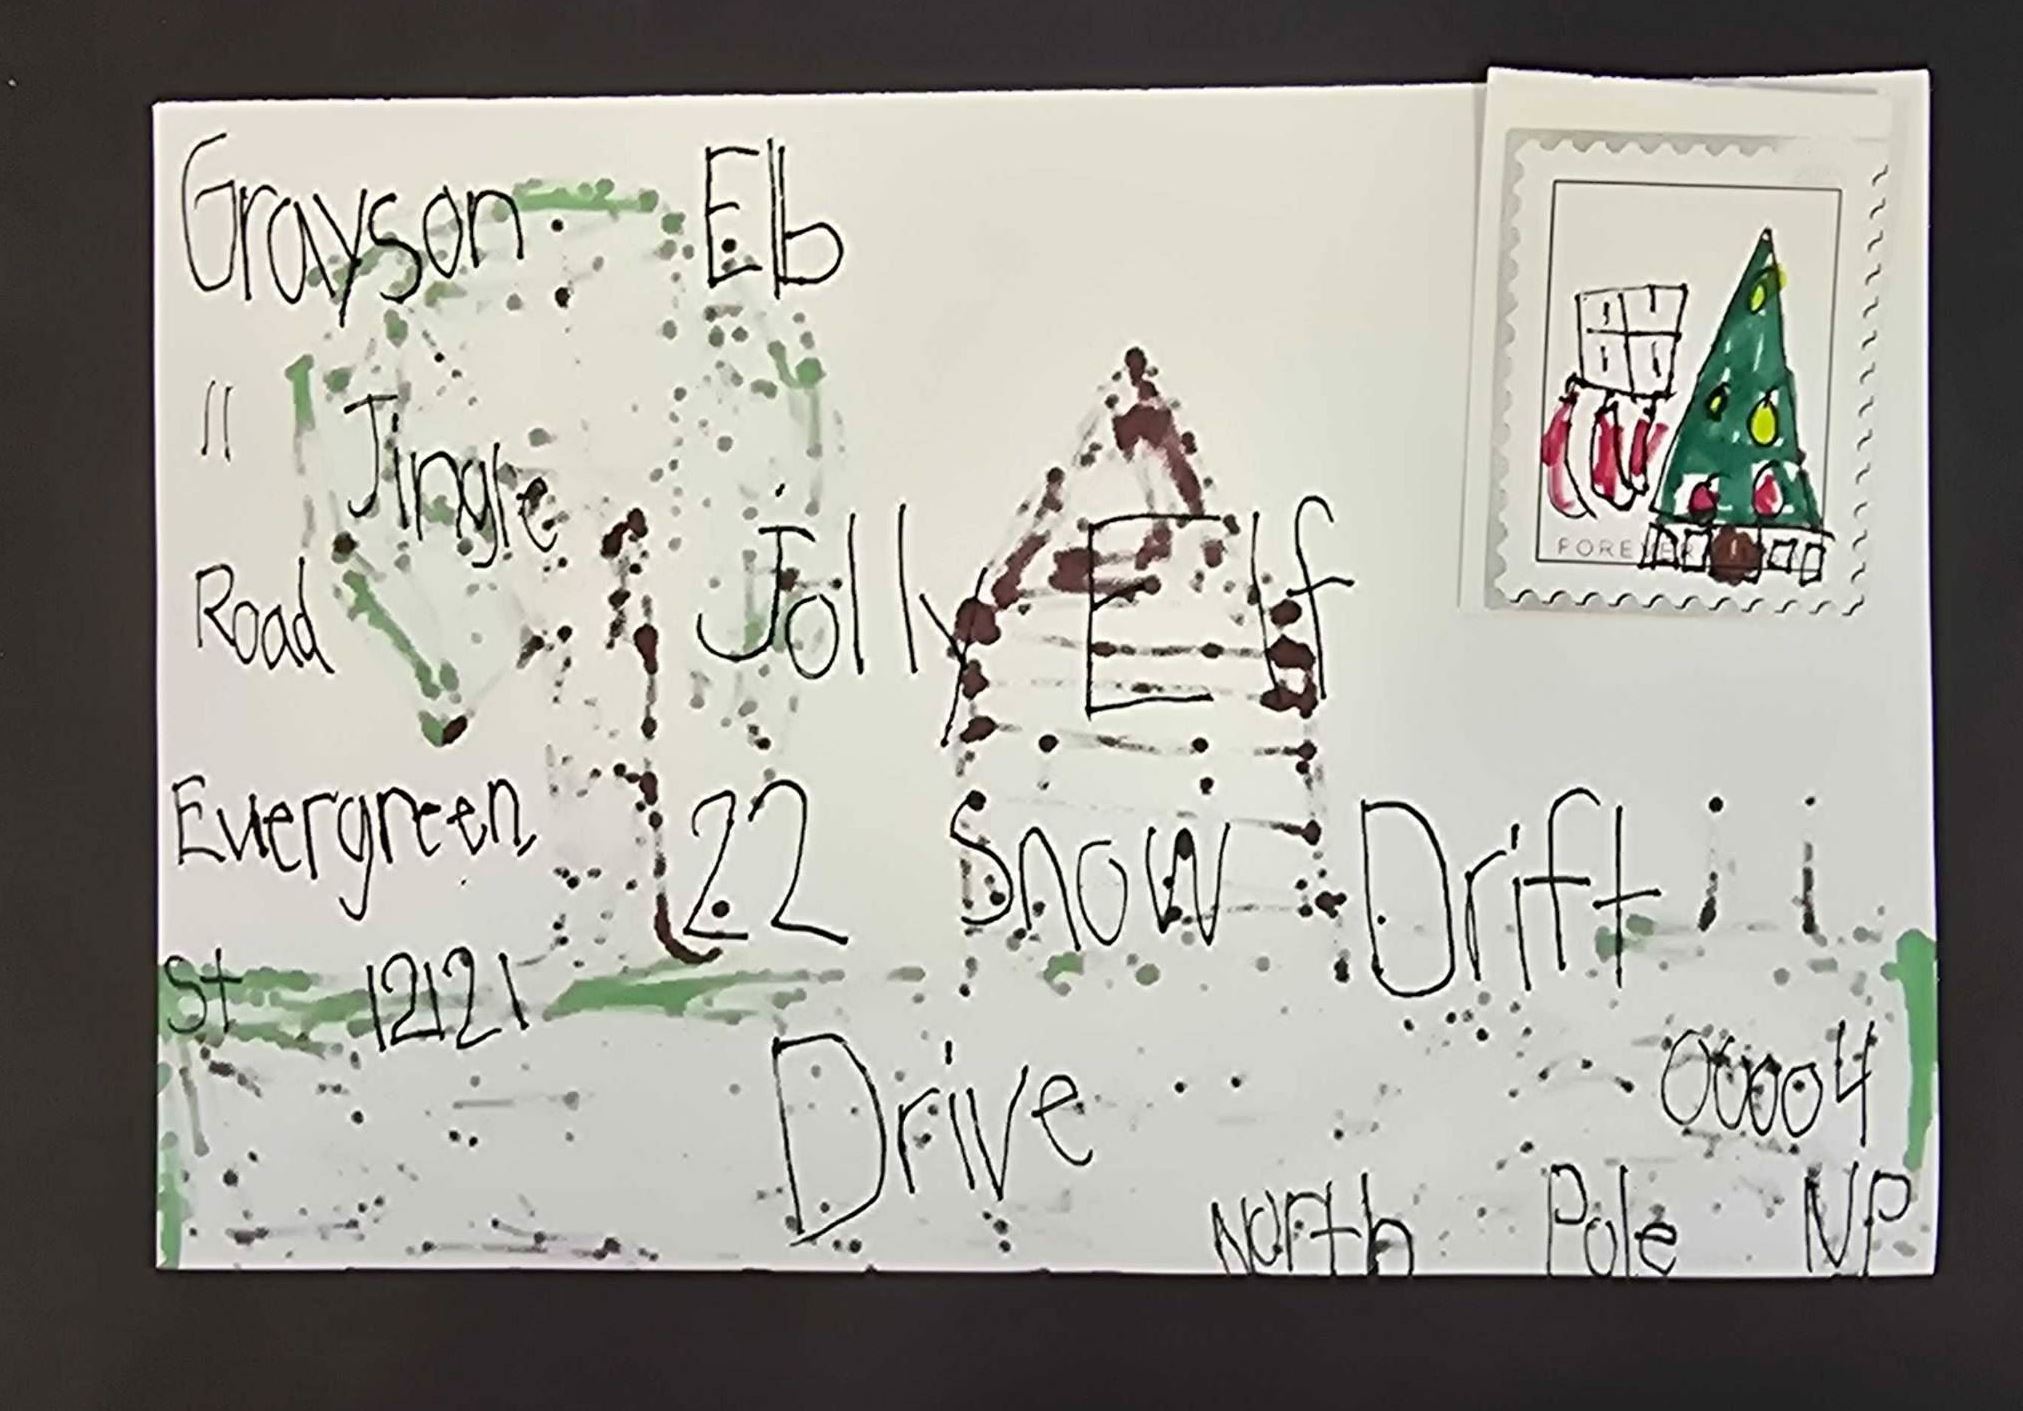 Grayson Elb
11 Jingle
Road
Evergreen,
St 12121
Jolly Elf
22 Snow Drift
Drive
00004
North Pole NP
FOREVER